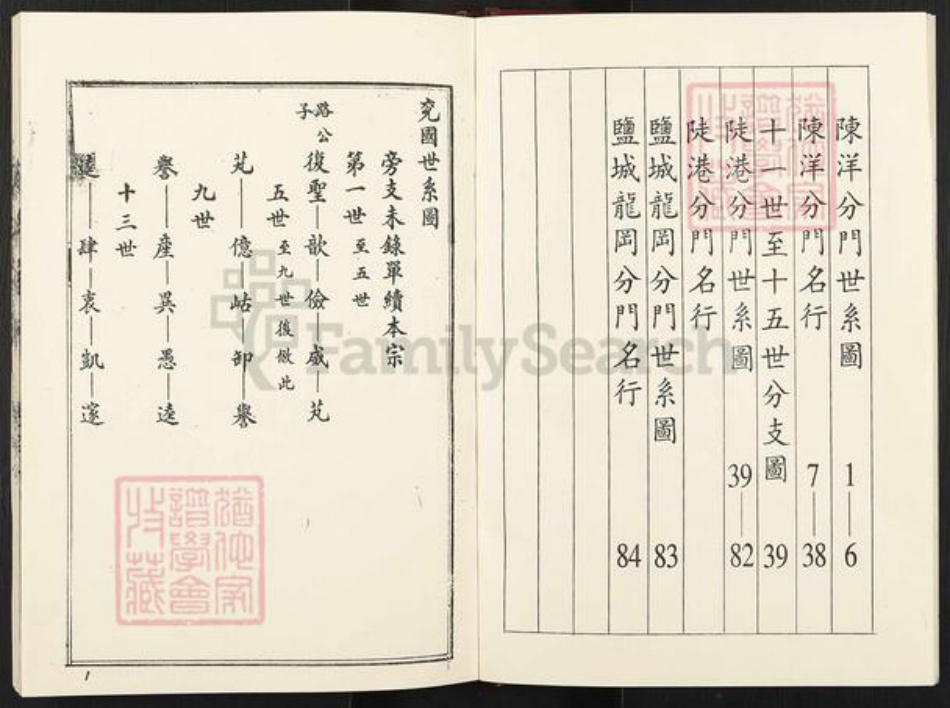 陳洋分門世系圖 1—6
陳洋分門名行 7—38
十一世至十五世分支圖 39
陡港分門世系圖 39—82
陡港分門名行
鹽城龍岡分門世系圖 83
鹽城龍岡分門名行 84
兖國世系圖
旁支未錄單續本宗
第一世至五世
路公子 復聖—歆—儉—威—芃
五世至九世後倣此
芃—億—岵—卸—譽
九世
譽—產—異—愚—逵
十三世
肆—衷—凱—邃
1
FamilySearch
猶他家譜學會收藏